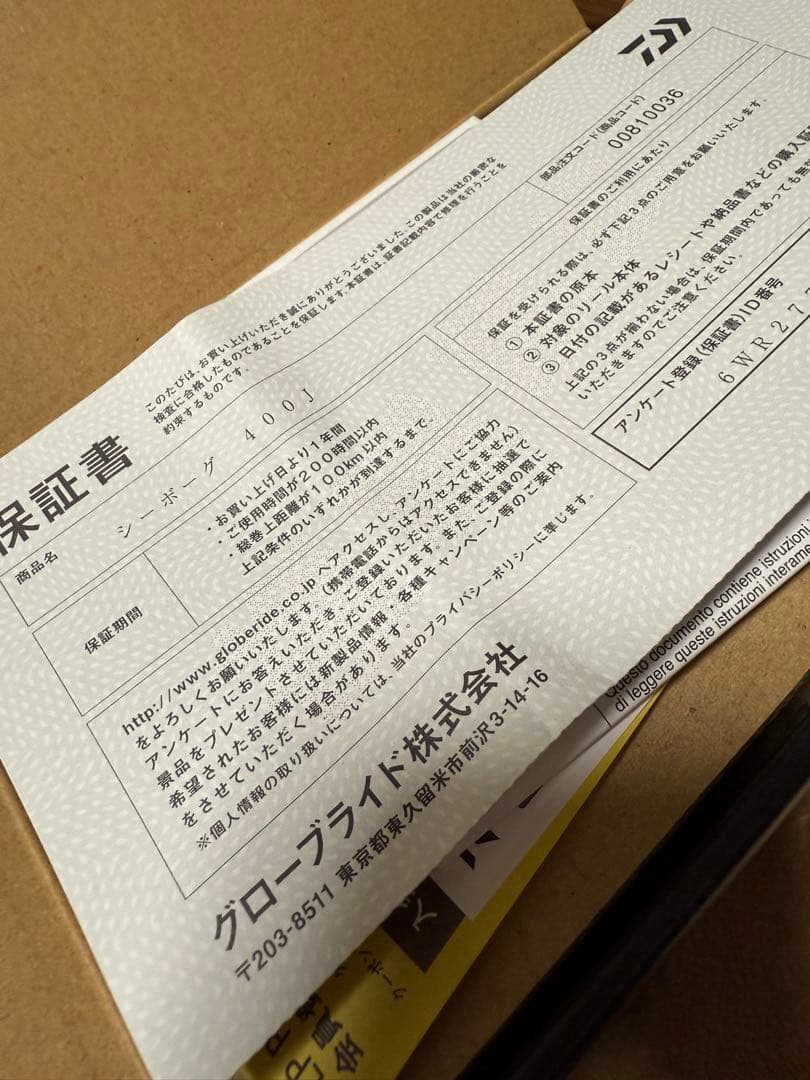 保証書
このたびは、お買い上げいただき誠にありがとうございました。この製品は当社の厳密な
検査に合格したものであることを保証します。本証書は、証書記載内容で修理を行うことを
約束するものです。
商品名
シーボーグ 400J
保証期間
・お買い上げ日より1年間
・ご使用時間が200時間以内
・総巻上距離が100km以内
上記条件のいずれかが到達するまで。
http://www.globeride.co.jp へアクセスし、アンケートにご協力
をよろしくお願いいたします（携帯電話からはアクセスできません）
アンケートにお答えいただき、ご登録いただいたお客様に抽選で
景品をプレゼントさせていただいております。また、ご登録の際に
希望されたお客様には新製品情報、各種キャンペーン等のご案内
をさせていただく場合があります。
※個人情報の取り扱いについては、当社のプライバシーポリシーに準じます。
グローブライド株式会社
〒203-8511 東京都東久留米市前沢3-14-16
部品注文コード(商品コード)
00810036
保証書のご利用にあたり
保証を受けられる際は、必ず下記3点のご用意をお願いいたします。
① 本証書の原本
② 対象のリール本体
③ 日付の記載があるレシートや納品書などの購入
上記の3点が揃わない場合は、保証期間内であっても無
いただきますのでご注意ください。
アンケート登録(保証書)ID番号
6WR27
Questo documento contiene istruzioni
di leggere queste istruzioni